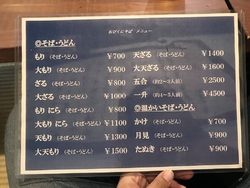 おびくにそば メニュー
◎そば・うどん
もり (そば・うどん) ¥700
大もり (そば・うどん) ¥900
ざる (そば・うどん) ¥800
大ざる (そば・うどん) ¥1000
もり にら (そば・うどん) ¥800
大もり にら (そば・うどん) ¥1100
天もり (そば・うどん) ¥1300
大天もり (そば・うどん) ¥1500
天ざる (そば・うどん) ¥1400
大天ざる (そば・うどん) ¥1600
五合 (約2~3人前) ¥2500
一升 (約4~5人前) ¥4500
◎温かいそば・うどん
かけ (そば・うどん) ¥700
月見 (そば・うどん) ¥900
たぬき (そば・うどん) ¥900